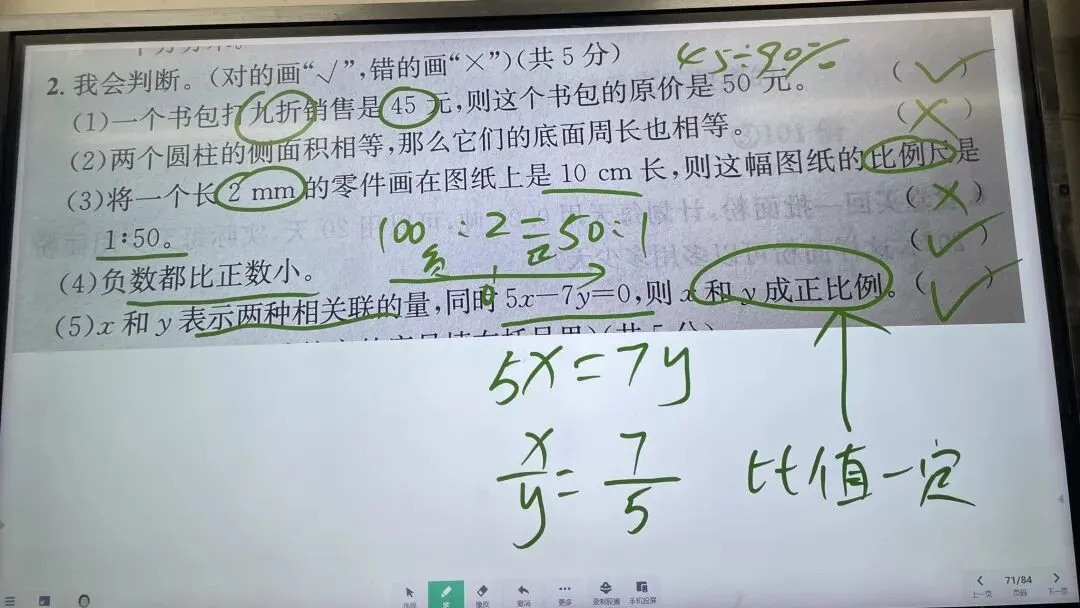 2. 我会判断。(对的画“√”,错的画“×”)(共 5 分)
45÷90%
(1)一个书包打九折销售是 45 元,则这个书包的原价是 50 元。 (✓)
(2)两个圆柱的侧面积相等,那么它们的底面周长也相等。 (×)
(3)将一个长 2 mm 的零件画在图纸上是 10 cm 长,则这幅图纸的比例尺是
1∶50。 (×)
100÷2=50÷1
(4)负数都比正数小。 (✓)
负 0 正
(5)x 和 y 表示两种相关联的量,同时 5x-7y=0,则 x 和 y 成正比例。 (✓)
5x=7y
x/y=7/5
比值一定
橡皮 撤消 更多 录制胶囊 手机投屏
上一页 71/84 页码 下一页